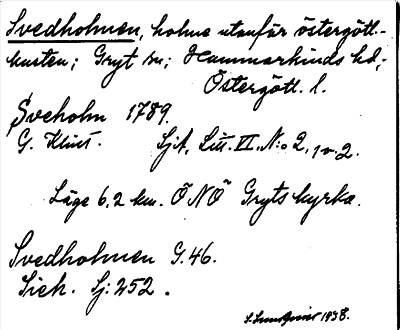 Svedholmen, holme utanför östergött-
kusten; Gryt sn; Hammarkinds hd;
Östergötl. l.
Sveholn 1789.
G. Klint. Sjk, Litt. VI. N:o 2, p. 2.
Läge 6,2 km. ÖNÖ Gryts kyrka.
Svedholmen G. 46.
Sieh. Sj: 252.
1938.